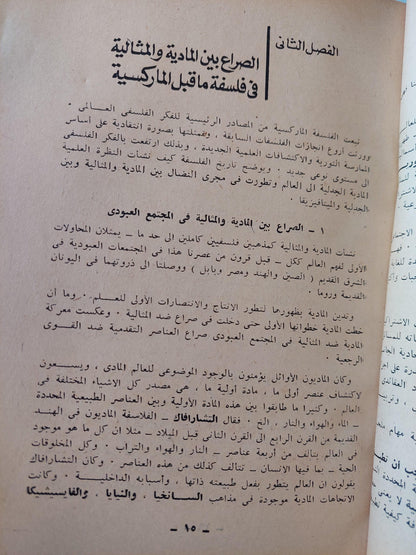 الفصل الثاني
الصراع بين المادية والمثالية
في فلسفة ما قبل الماركسية
نبعت الفلسفة الماركسية من المصادر الرئيسية للفكر الفلسفى العالمى
وورثت أروع انجازات الفلسفات السابقة ، وتمثلتها بصورة انتقادية على أساس
الممارسة الثورية والاكتشافات العلمية الجديدة . وبذلك ارتفعت بالفكر الفلسفى
الى مستوى نوعى جديد . ويوضح تاريخ الفلسفة كيف نشأت النظرة العلمية
المادية الجدلية الى العالم وتطورت فى مجرى النضال بين المادية والمثالية وبين
الجدلية والميتافيزيقا .
١ – الصراع بين المادية والمثالية فى المجتمع العبودى
نشأت المادية والمثالية كمذهبين فلسفيين كاملين الى حد ما – يمثلان المحاولات
الأولى لفهم العالم ككل – قبل قرون من عصرنا هذا فى المجتمعات العبودية فى
الشرق القديم ( الصين والهند ومصر وبابل ) ووصلتا الى ذروتهما فى اليونان
القديمة وروما .
وتدين المادية بظهورها لتطور الانتاج والانتصارات الأولى للعلم . وما أن
خطت المادية خطواتها الأولى حتى دخلت فى صراع ضد المثالية . وعكست معركة
المادية ضد المثالية فى المجتمع العبودى صراع العناصر التقدمية ضد القوى
الرجعية .
وكان الماديون الأوائل يؤمنون بالوجود الموضوعى للعالم المادى ، ويسعون
لاكتشاف عنصر أولى ما ، مادة أولية ما ، هى مصدر كل الاشياء المختلفة فى
العالم . وكثيرا ما طابقوا بين هذه المادة الأولية وبين العناصر الطبيعية المحددة
– الماء والهواء والنار ، الخ . فقال التشارافاك – الفلاسفة الماديون فى الهند
القديمة من القرن الرابع الى القرن الثانى قبل الميلاد – ان كل ما هو موجود
فى العالم يتألف من أربعة عناصر – النار والماء والهواء والتراب . وكل المخلوقات
الحية – بما فيها الانسان – تتألف كذلك من هذه العناصر . وكان التشارافاك
يقولون ان العالم يتطور بفعل طبيعته ذاتها ، وأسبابه الداخلية – وكانت
الاتجاهات المادية موجودة فى مذاهب السانخيا ، والنيايا ، والفايسيشيكا
– ١٥ –